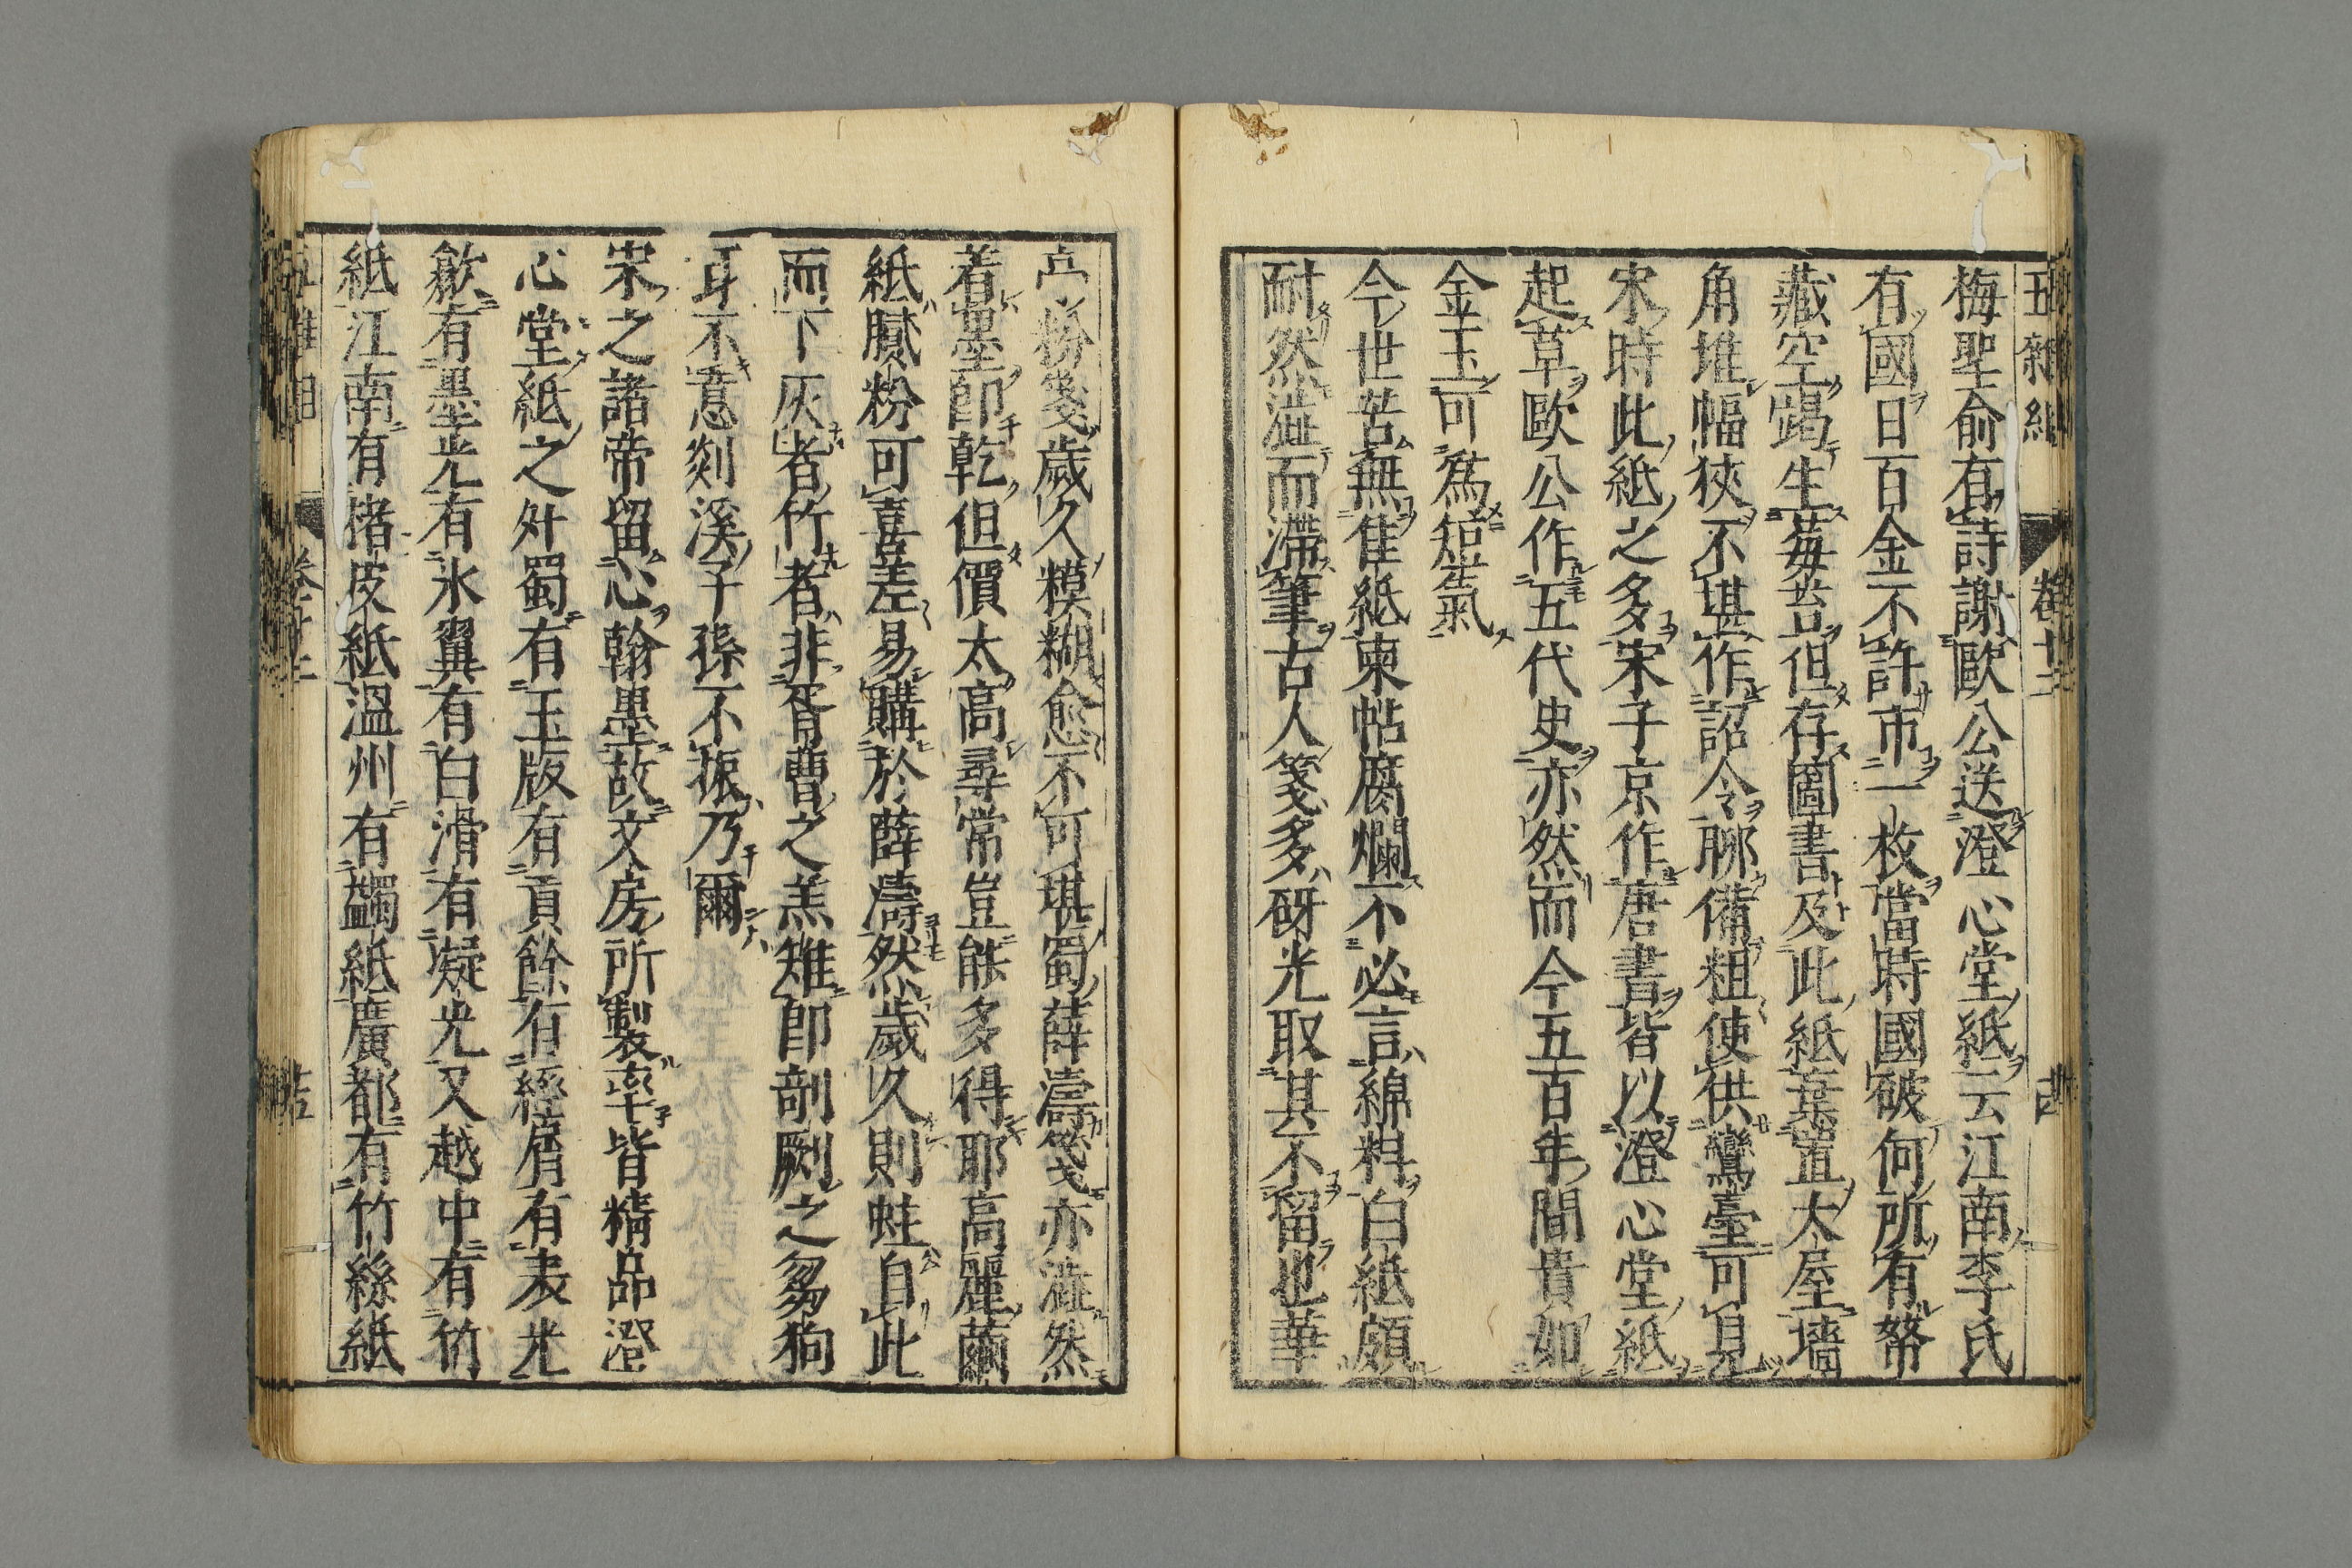 五雜組 卷十二
梅聖俞有詩謝歐公送澄心堂紙云江南李氏
有國日百金不許市一枚當時國破何所有帑
藏空竭生莓苔但存圖書及此紙棄置大屋墻
角堆幅狹不堪作詔令聊備粗使供鸞臺可見
宋時此紙之多宋子京作唐書皆以澄心堂紙
起草歐公作五代史亦然而今五百年間貴如
金玉可爲短氣
今世苦無佳紙柬帖腐爛不必言綿料白紙頗
耐然澁而滯筆古人箋多砑光取其不留也華
亭粉箋歲久糢糊愈不可堪蜀薛濤箋亦澁然
着墨即乾但價太高尋常豈能多得耶高麗繭
紙膩粉可喜差易購於薛濤然歲久則蛀自此
而下灰者竹者非胥曹之羔雉即剞劂之芻狗
耳不意剡溪子孫不振乃爾
宋之諸帝留心翰墨故文房所製率皆精品澄
心堂紙之外蜀有玉版有貢餘有經屑有表光
歙有墨光有氷翼有白滑有凝光又越中有竹
紙江南有楮皮紙溫州有蠲紙廣都有竹絲紙
卷十二